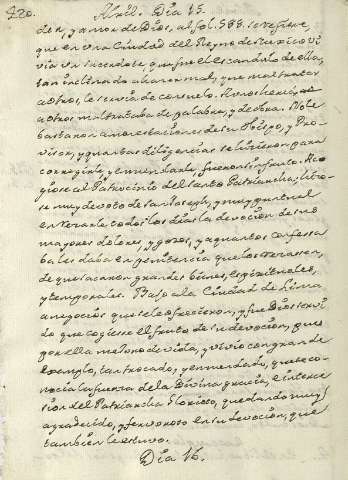 220. Abril. Dia 15.
der, y amor de Dios, al fol. 588. se refiere,
que en una Ciudad del Reyno de Mexico vi
via un sacerdote, que fue el escandalo de ella,
tan inclinado a hacer mal, que maltratar
a otros, le servia de consuelo. A unos heria, a
otros maltrataba de palabra, y de obra. No le
bastaron amonestaciones de su Obispo, y Pro
visor, y quantas diligencias se hicieron para
corregirle, y enmendarle, fueron sin fruto. Aco
giose al Patrocinio del santo Patriarcha, hizo
se muy devoto de san Joseph, y muy puntual
en rezarle todos los dias la devocion de sus
mayores dolores, y gozos, y a quantos confesa
ba les daba en penitencia que los rezassen,
de que sacaron grandes bienes, espirituales,
y temporales. Bajo a la Ciudad de Lima
a negocios que se le ofrecieron, y fue Dios servi
do que cogiesse el fruto de su devocion, pues
por ella mudo de vida, y vivio con gran de
exemplo, tan trocado, y enmendado, que se co
nocia la fuerza de la Divina gracia, e interce
sion del Patriarcha Glorioso, quedando muy
agradecido, y fervoroso en su devocion, que
tambien le estuvo.
Dia 16.